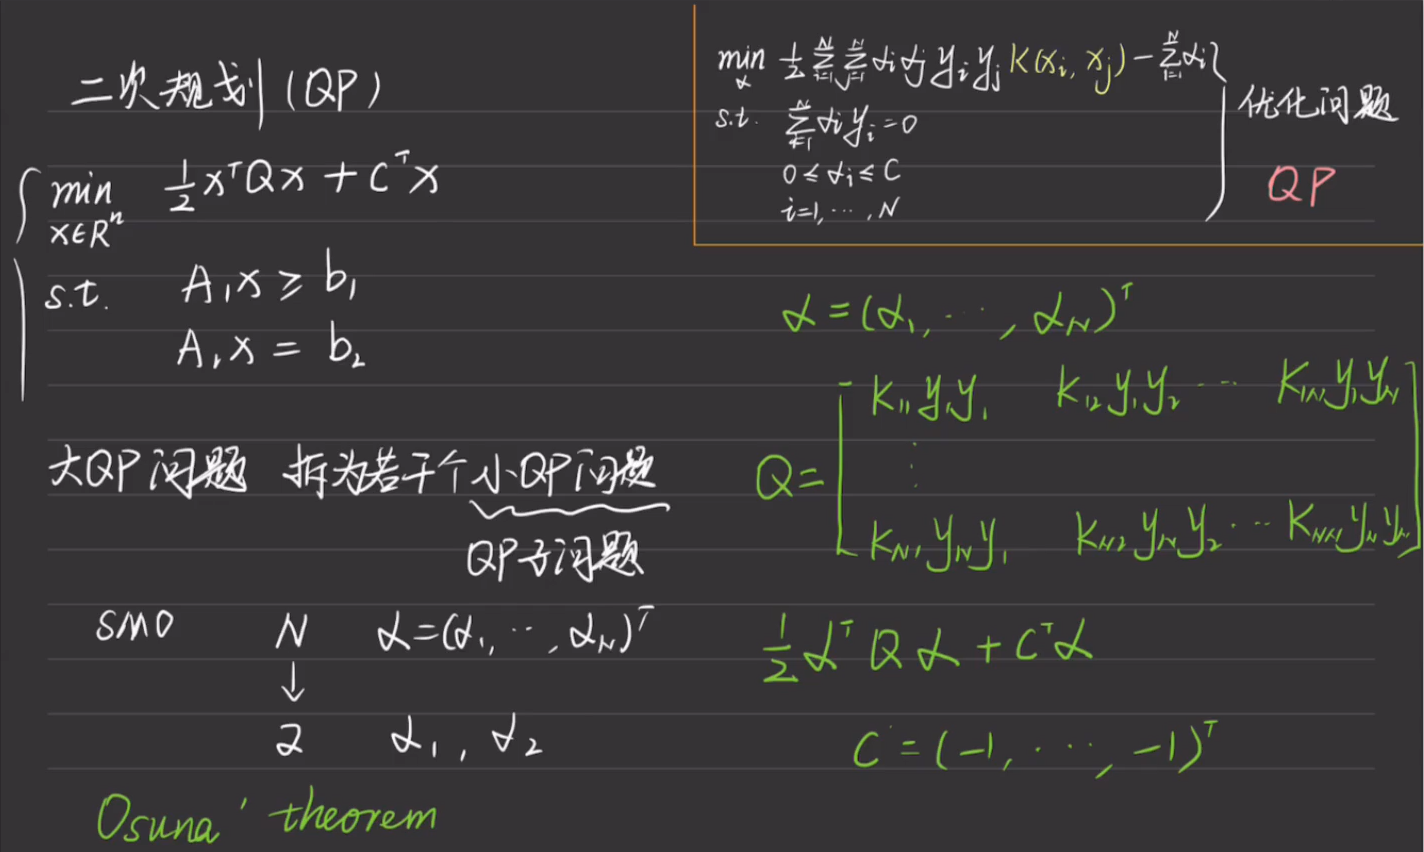 二次规划(QP)
min 1/2 x^T Q x + C^T x
x∈R^n
s.t. A₁x ≥ b₁
A₁x = b₂
大QP问题 拆为若干个小QP问题
QP子问题
SMO N α=(α₁, ⋯, α_N)^T
↓
2 α₁, α₂
Osuna' theorem
min_α 1/2 Σ_{i=1}^N Σ_{j=1}^N αᵢ αⱼ yᵢ yⱼ K(xᵢ, xⱼ) − Σ_{i=1}^N αᵢ
s.t. Σ_{i=1}^N αᵢ yᵢ = 0
0 ≤ αᵢ ≤ C
i=1, ⋯, N
优化问题
QP
α = (α₁, ⋯, α_N)^T
Q = [ K₁₁y₁y₁ K₁₂y₁y₂ ⋯ K₁ₙy₁yₙ
⋮
K_{N1}y_N y₁ K_{N2}y_N y₂ ⋯ K_{NN}y_N y_N ]
1/2 α^T Q α + C^T α
C = (−1, ⋯, −1)^T